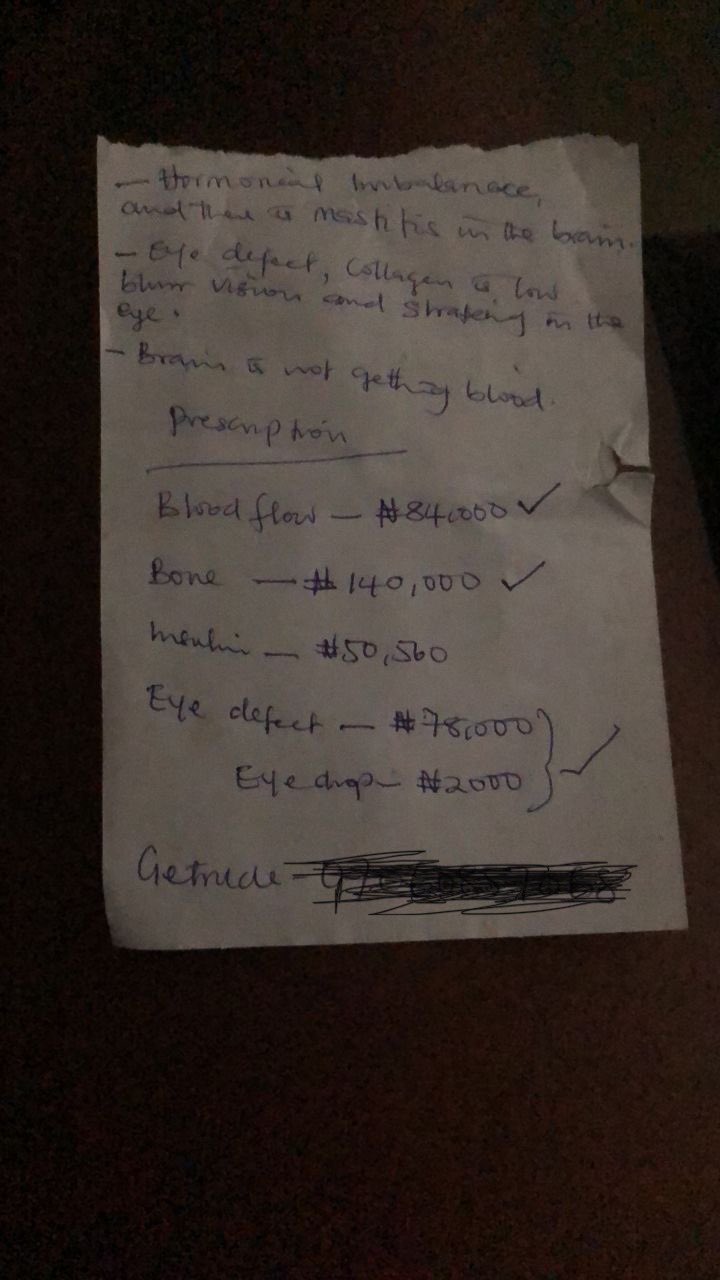 - Hormonial Imbalanace,
and there is Mastitis in the brain.
- Eye defect, Collagen is low
blurr vision and in the
eye.
- Brain is not getting blood.
Prescription
Blood flow - ₦84,000 ✓
Bone - ₦140,000 ✓
Insulin - ₦50,560
Eye defect - ₦78,000
Eye drop - ₦2000
Getrude -